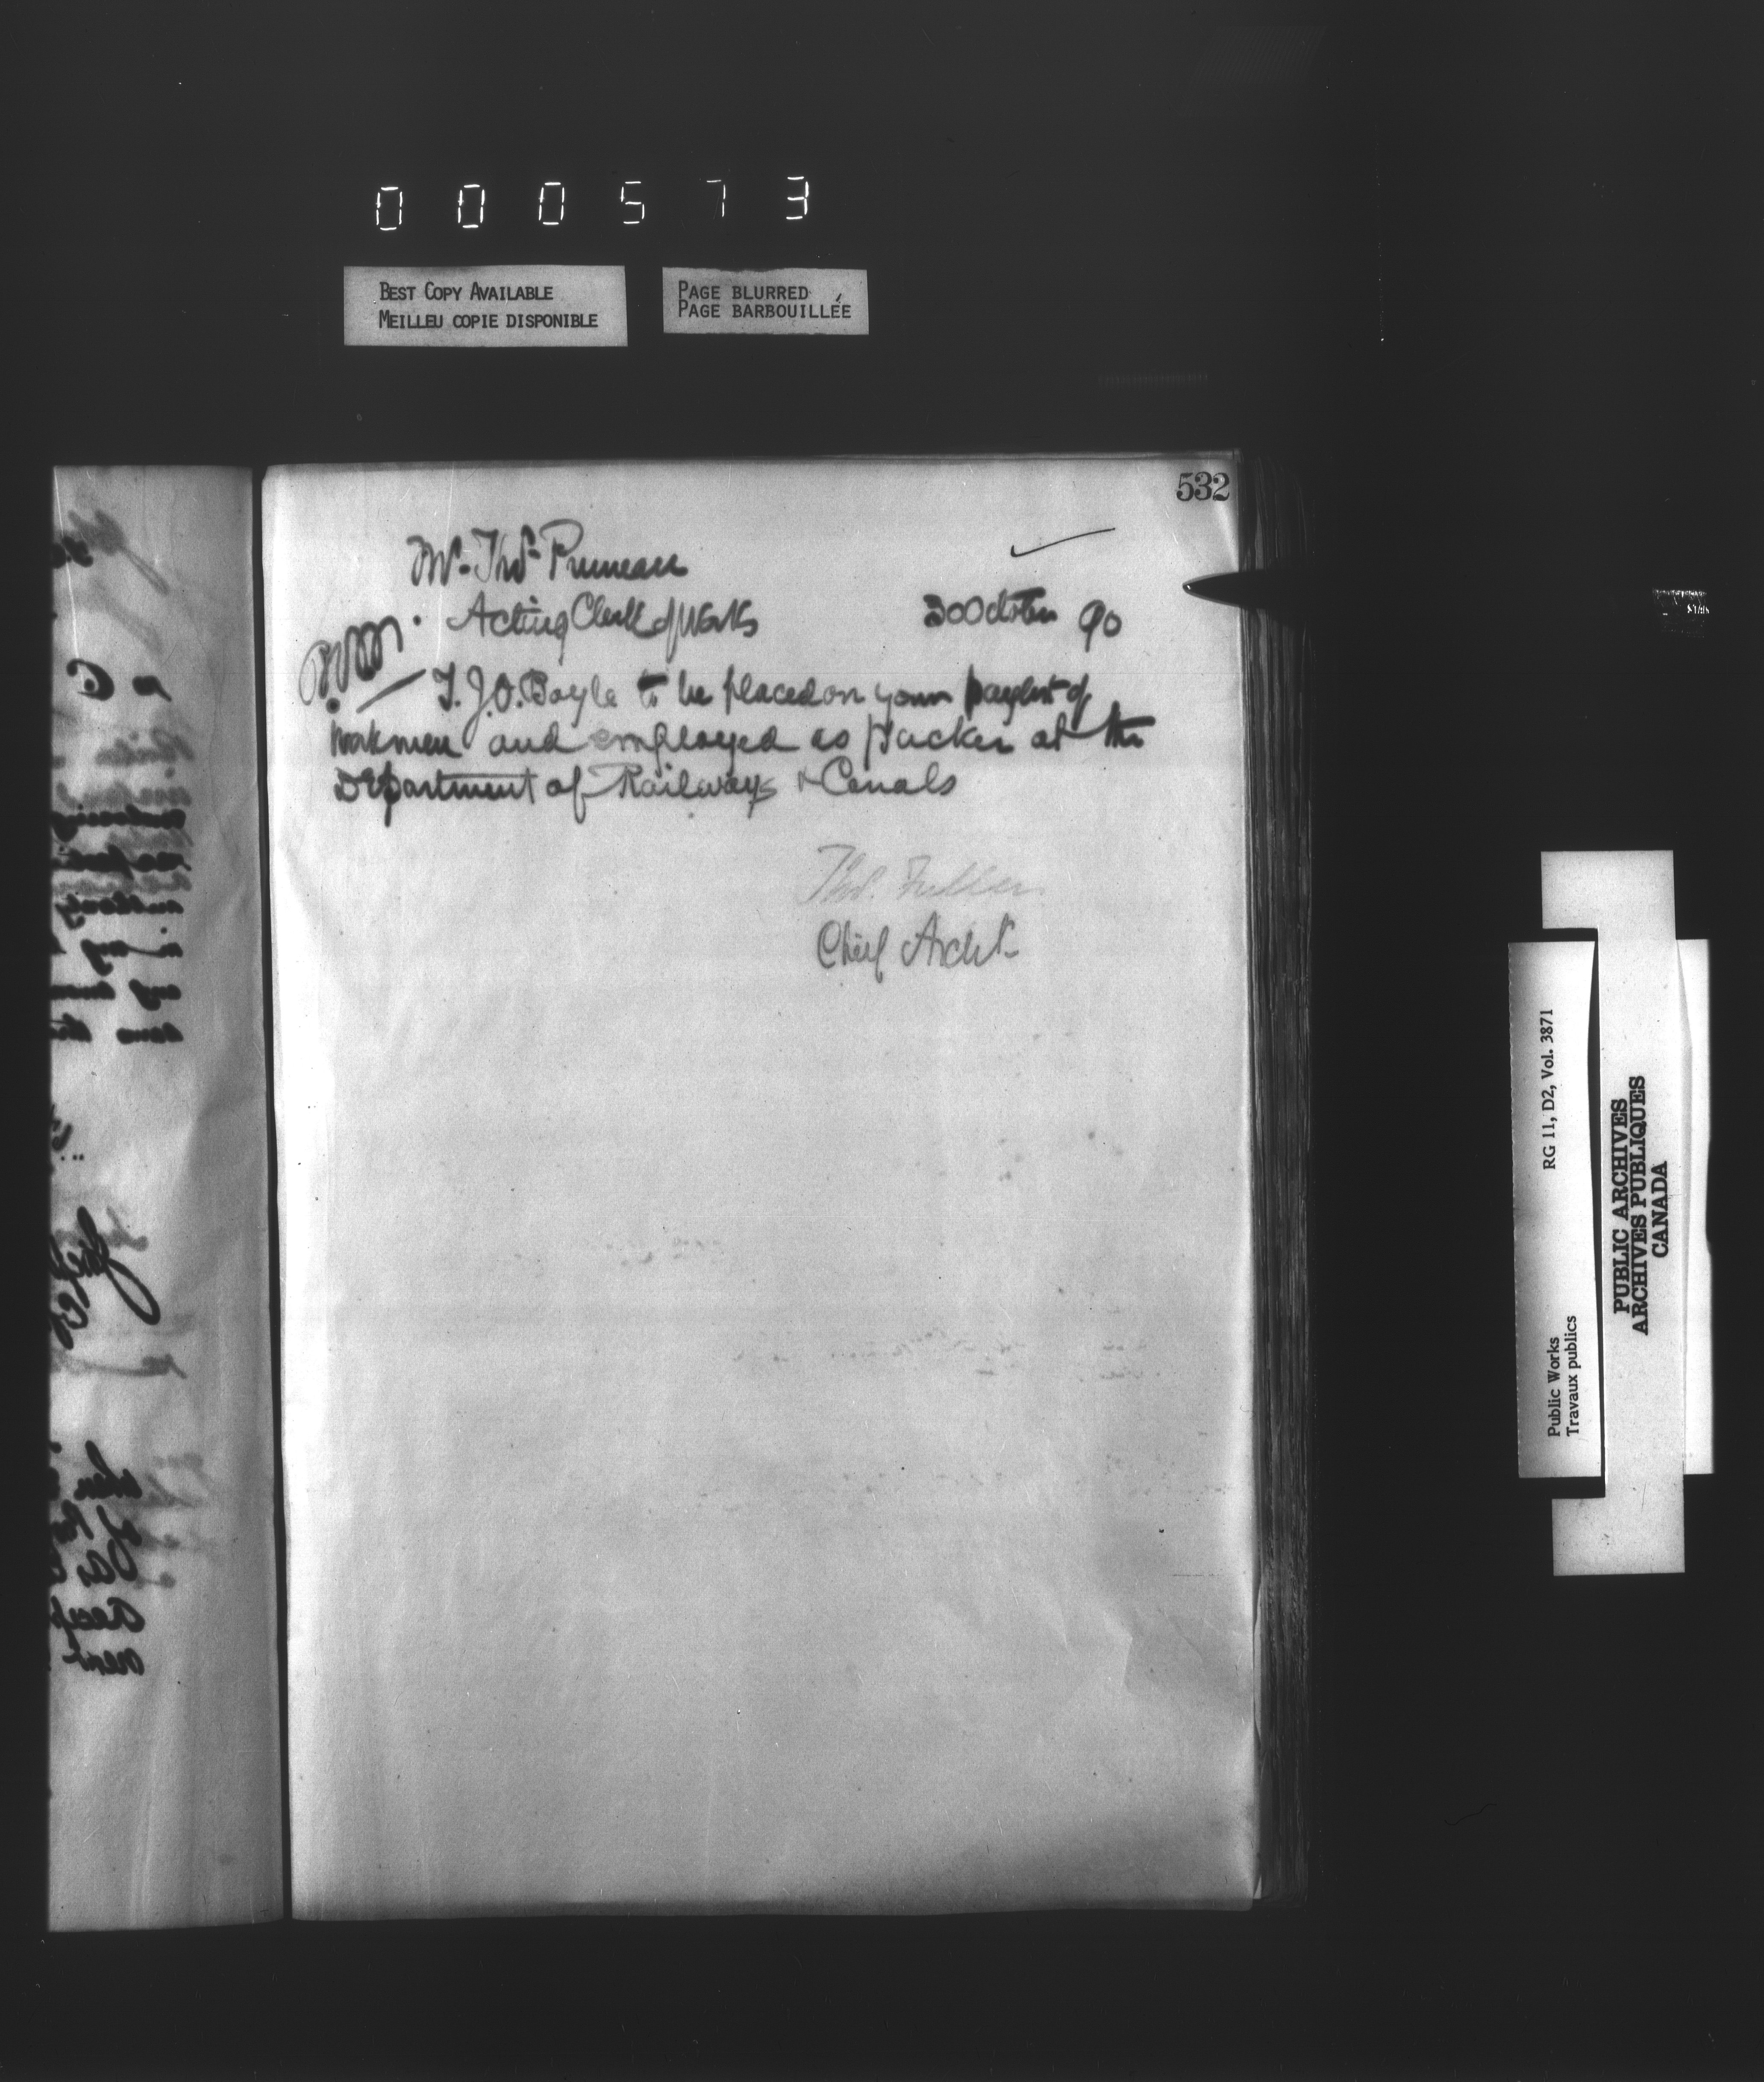 000573
BEST COPY AVAILABLE
MEILLEU COPIE DISPONIBLE
PAGE BLURRED
PAGE BARBOUILLÉE
532
Mr. Thos Pruneau
Acting Clerk of Works 30 October 90
T. J. O. Boyle to be placed on your paylist of
workmen and employed as packer at the
Department of Railways & Canals
Thos. Fuller
Chief Archt.
RG 11, D2, Vol. 3871
Public Works
Travaux publics
PUBLIC ARCHIVES
ARCHIVES PUBLIQUES
CANADA